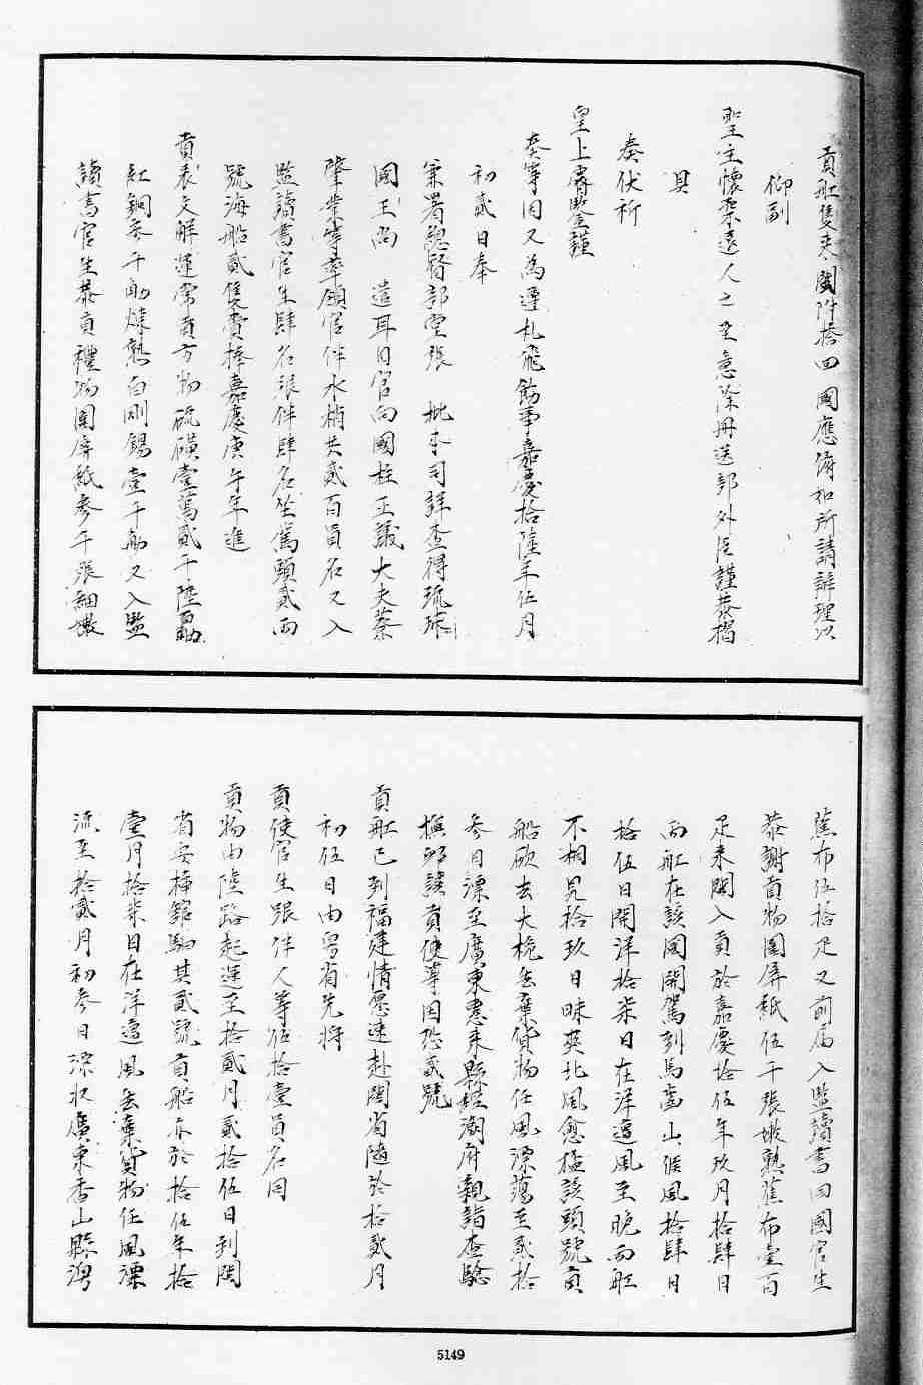 貢船隻來閩附搭回國應俯如所請辦理以
仰副
聖主懷柔遠人之至意除冊送部外理謹恭摺
具
奏伏祈
皇上睿鑒謹
奏等因又為遵札飛飭事嘉慶拾陸年伍月
初貳日奉
兼署總督部堂張 批本司詳查得琉球
國王尚 遣耳目官向國柱正議大夫蔡
肇業等率領官伴水梢共貳百員名又入
監讀書官生肆名跟伴肆名坐駕頭貳兩
號海船貳隻賫捧嘉慶庚午年進
貢表文解運常貢方物硫磺壹萬貳千陸百觔
紅銅參千觔煉熟白剛錫壹千觔又入監
讀書官生恭貢禮物圍屏紙參千張細嫩
蕉布伍拾疋又前屆入監讀書回國官生
恭謝貢物圍屏紙伍千張嫩熟蕉布壹百
疋來閩入貢於嘉慶拾伍年玖月拾肆日
兩船在該國開駕到馬齒山候風拾肆日
拾伍日開洋拾柒日在洋遭風至晚兩船
不相見拾玖日昧爽北風愈猛該頭號貢
船砍去大桅丟棄貨物任風漂蕩至貳拾
參日漂至廣東惠來縣經潮府親詣查驗
撫卹該貢使等因恐貳號
貢船已到福建情愿速赴閩省隨於拾貳月
初伍日由粵省先將
貢使官生跟伴人等伍拾壹員名同
貢物由陸路起運至拾貳月貳拾伍日到閩
省安插館驛其貳號貢船亦於拾伍年拾
壹月拾柒日在洋遭風丟棄貨物任風漂
流至拾貳月初參日漂收廣東香山縣灣
5149